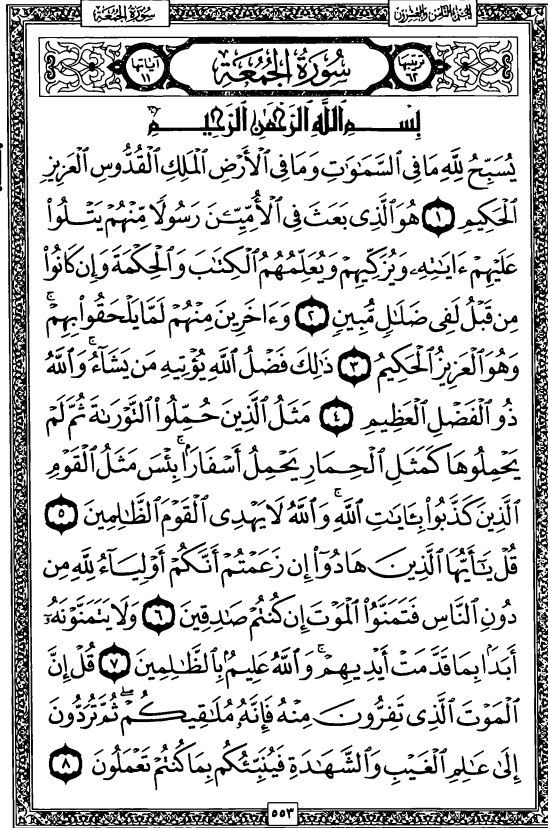 الجزء الثامن والعشرون
سورة الجمعة
ترتيبها ٦٢
سُورَةُ الجُمُعَة
آياتها ١١
بِسۡمِ ٱللَّهِ ٱلرَّحۡمَٰنِ ٱلرَّحِيمِ
يُسَبِّحُ لِلَّهِ مَا فِى ٱلسَّمَٰوَٰتِ وَمَا فِى ٱلۡأَرۡضِ ٱلۡمَلِكِ ٱلۡقُدُّوسِ ٱلۡعَزِيزِ
ٱلۡحَكِيمِ ١ هُوَ ٱلَّذِى بَعَثَ فِى ٱلۡأُمِّيِّـۧنَ رَسُولٗا مِّنۡهُمۡ يَتۡلُواْ
عَلَيۡهِمۡ ءَايَٰتِهِۦ وَيُزَكِّيهِمۡ وَيُعَلِّمُهُمُ ٱلۡكِتَٰبَ وَٱلۡحِكۡمَةَ وَإِن كَانُواْ
مِن قَبۡلُ لَفِى ضَلَٰلٖ مُّبِينٖ ٢ وَءَاخَرِينَ مِنۡهُمۡ لَمَّا يَلۡحَقُواْ بِهِمۡۚ
وَهُوَ ٱلۡعَزِيزُ ٱلۡحَكِيمُ ٣ ذَٰلِكَ فَضۡلُ ٱللَّهِ يُؤۡتِيهِ مَن يَشَآءُۚ وَٱللَّهُ
ذُو ٱلۡفَضۡلِ ٱلۡعَظِيمِ ٤ مَثَلُ ٱلَّذِينَ حُمِّلُواْ ٱلتَّوۡرَىٰةَ ثُمَّ لَمۡ
يَحۡمِلُوهَا كَمَثَلِ ٱلۡحِمَارِ يَحۡمِلُ أَسۡفَارَۢاۚ بِئۡسَ مَثَلُ ٱلۡقَوۡمِ
ٱلَّذِينَ كَذَّبُواْ بِـَٔايَٰتِ ٱللَّهِۚ وَٱللَّهُ لَا يَهۡدِى ٱلۡقَوۡمَ ٱلظَّٰلِمِينَ ٥
قُلۡ يَٰٓأَيُّهَا ٱلَّذِينَ هَادُوٓاْ إِن زَعَمۡتُمۡ أَنَّكُمۡ أَوۡلِيَآءُ لِلَّهِ مِن
دُونِ ٱلنَّاسِ فَتَمَنَّوُاْ ٱلۡمَوۡتَ إِن كُنتُمۡ صَٰدِقِينَ ٦ وَلَا يَتَمَنَّوۡنَهُۥٓ
أَبَدَۢا بِمَا قَدَّمَتۡ أَيۡدِيهِمۡۚ وَٱللَّهُ عَلِيمُۢ بِٱلظَّٰلِمِينَ ٧ قُلۡ إِنَّ
ٱلۡمَوۡتَ ٱلَّذِى تَفِرُّونَ مِنۡهُ فَإِنَّهُۥ مُلَٰقِيكُمۡۖ ثُمَّ تُرَدُّونَ
إِلَىٰ عَٰلِمِ ٱلۡغَيۡبِ وَٱلشَّهَٰدَةِ فَيُنَبِّئُكُم بِمَا كُنتُمۡ تَعۡمَلُونَ ٨
٥٥٣